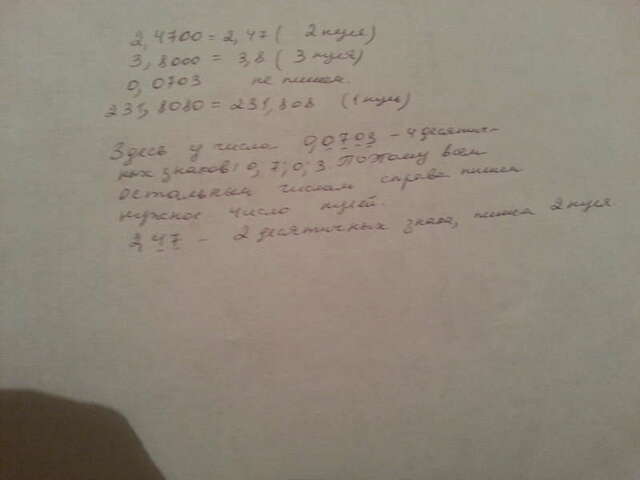 2,4700 = 2,47 ( 2 нуля)
3,8000 = 3,8 ( 3 нуля)
0,0703 не пишем.
231,8080 = 231,808 (1 нуль)
Здесь у числа 0,0703 - 4 десятич-
ных знаков: 0, 7; 0; 3. Поэтому всем
остальным числам справа пишем
нужное число нулей.
2,47 - 2 десятичных знака, пишем 2 нуля